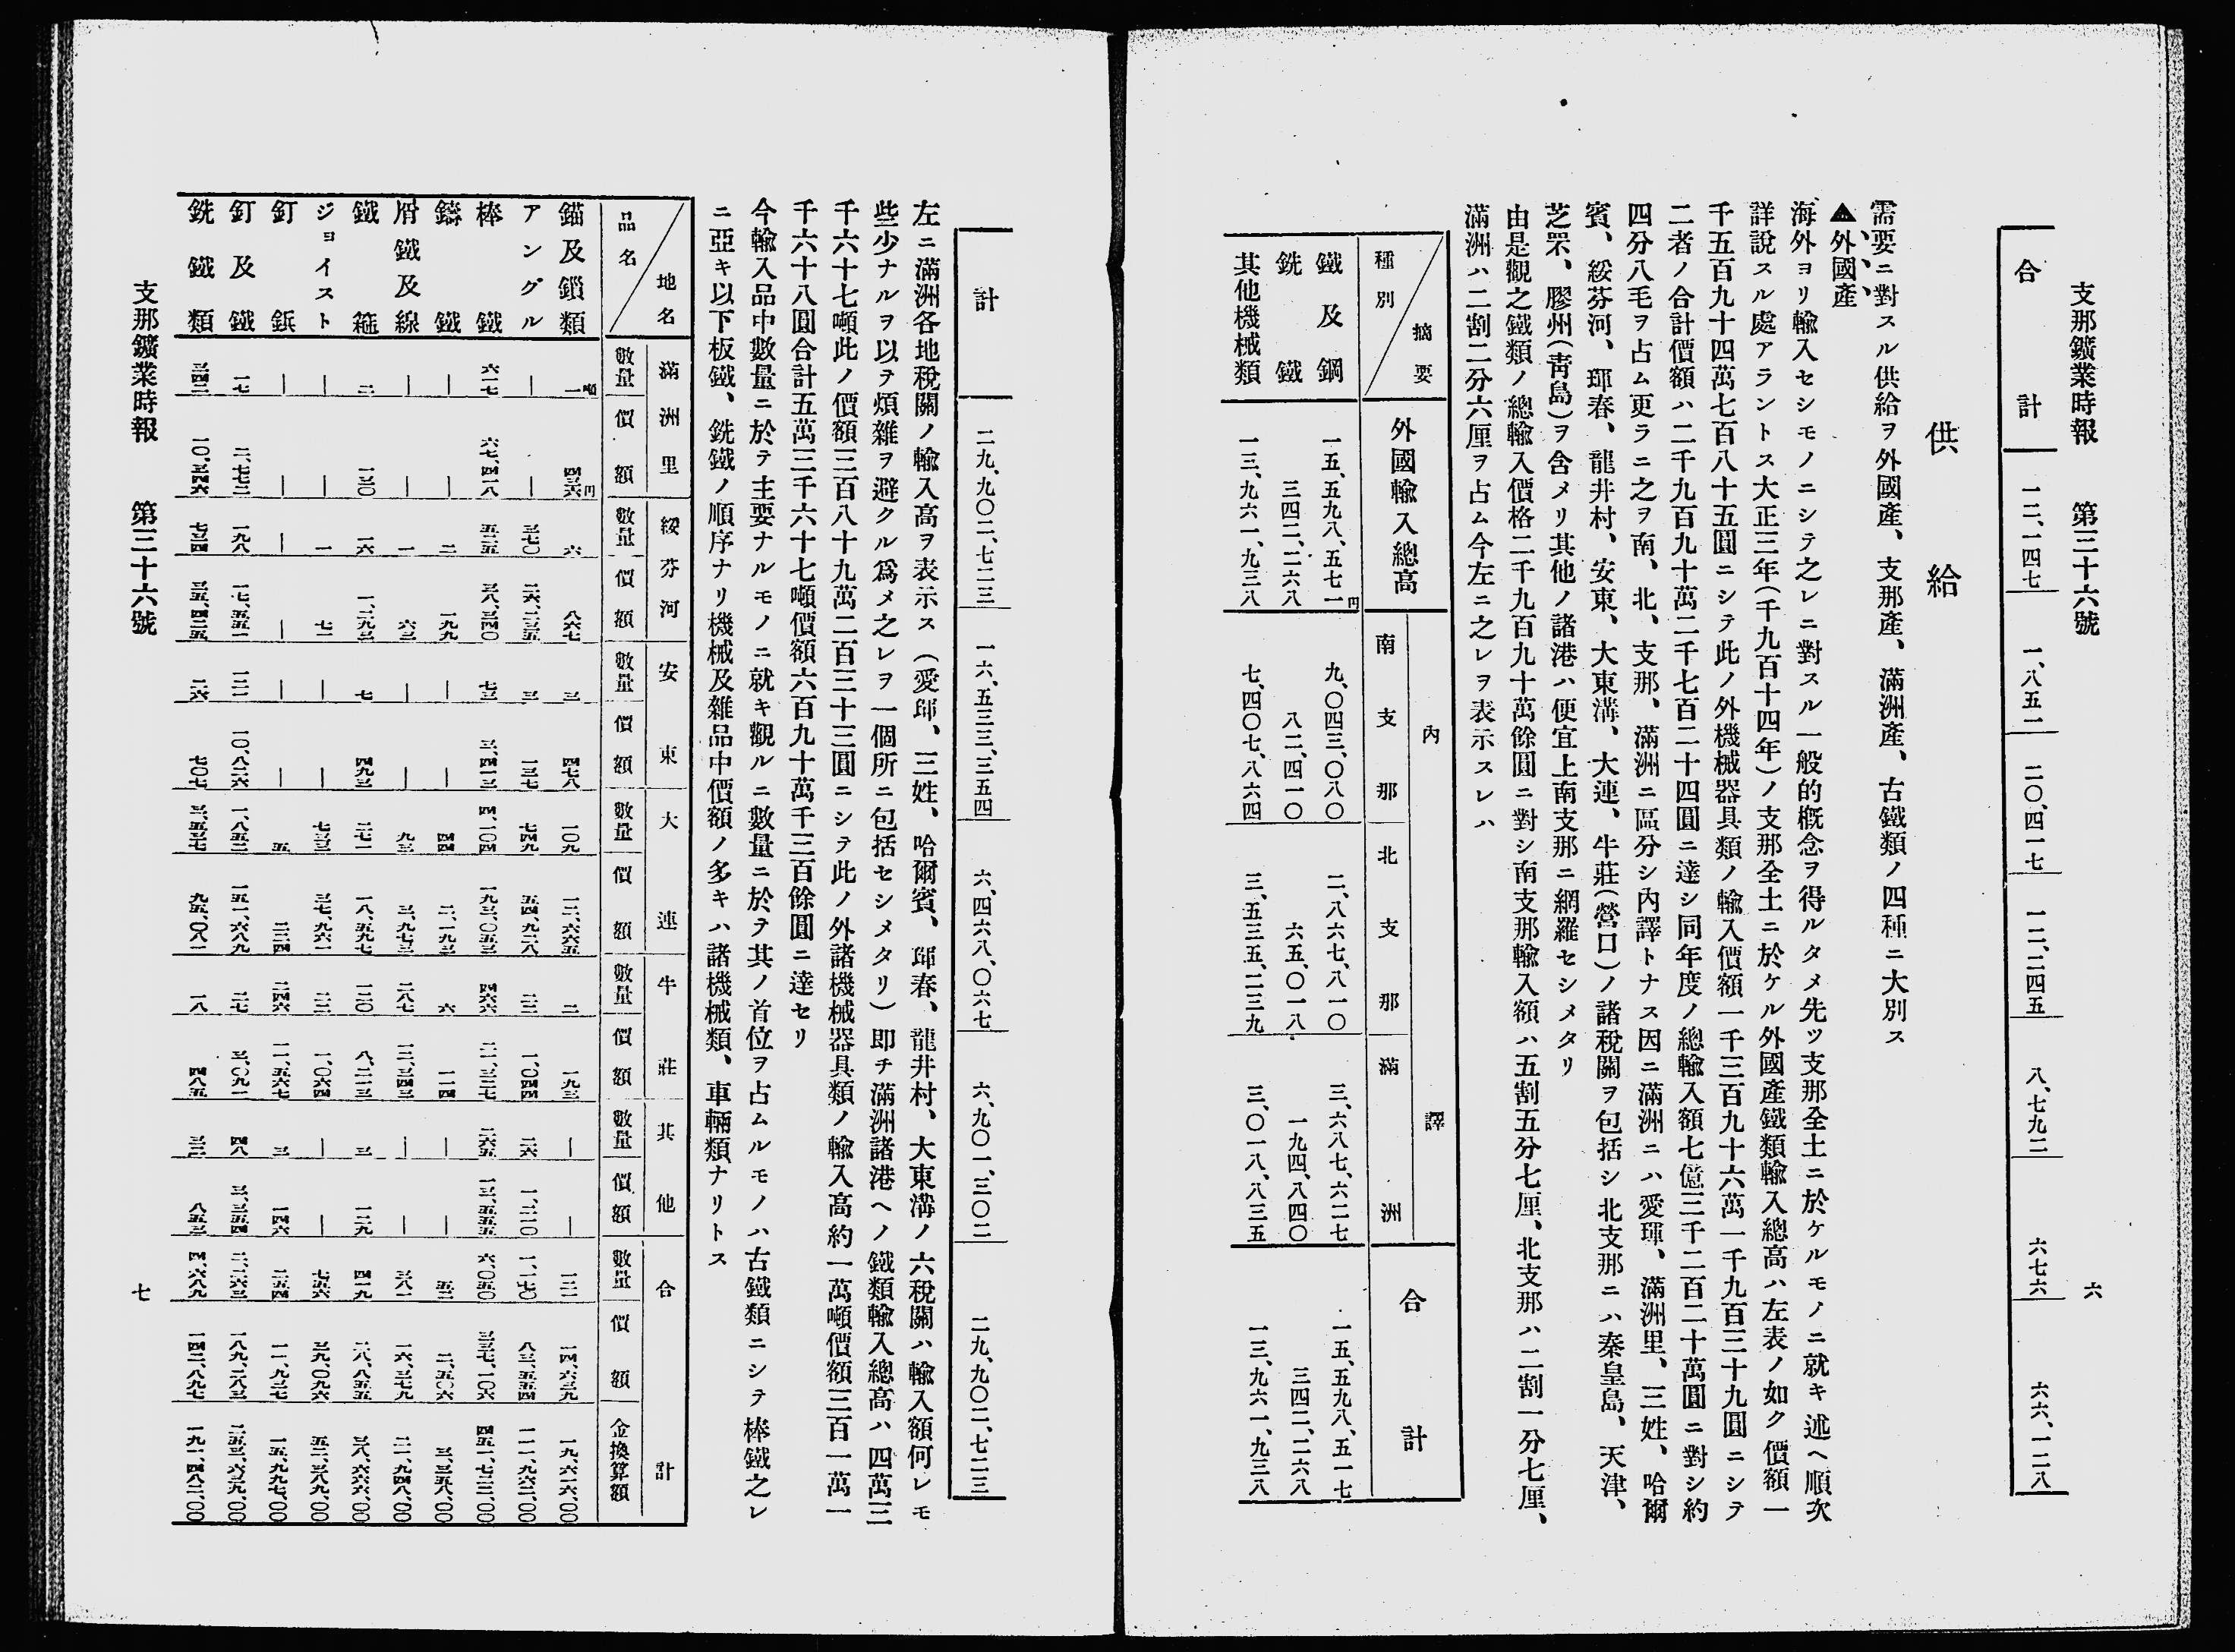 支那鑛業時報 第三十六號 六
合計 一二、一四七 一、八五一 二〇、四一七 一二、二四五 八、七九二 六七六 六六、一二八
供給
需要ニ對スル供給ヲ外國產、支那產、滿洲產、古鐵類ノ四種ニ大別ス
▲外國產
海外ヨリ輸入セシモノニシテ之レニ對スル一般的槪念ヲ得ルタメ先ツ支那全土ニ於ケルモノニ就キ述ヘ順次
詳說スル處アラントス大正三年(千九百十四年)ノ支那全土ニ於ケル外國產鐵類輸入總高ハ左表ノ如ク價額一
千五百九十四萬七百八十五圓ニシテ此ノ外機械器具類ノ輸入價額一千三百九十六萬一千九百三十九圓ニシテ
二者ノ合計價額ハ二千九百九十萬二千七百二十四圓ニ達シ同年度ノ總輸入額七億三千二百二十萬圓ニ對シ約
四分八毛ヲ占ム更ラニ之ヲ南、北、支那、滿洲ニ區分シ內譯トナス因ニ滿洲ニハ愛琿、滿洲里、三姓、哈爾
賓、綏芬河、琿春、龍井村、安東、大東溝、大連、牛莊(營口)ノ諸稅關ヲ包括シ北支那ニハ秦皇島、天津、
芝罘、膠州(靑島)ヲ含メリ其他ノ諸港ハ便宜上南支那ニ網羅セシメタリ
由是觀之鐵類ノ總輸入價格二千九百九十萬餘圓ニ對シ南支那輸入額ハ五割五分七厘、北支那ハ二割一分七厘、
滿洲ハ二割二分六厘ヲ占ム今左ニ之レヲ表示スレハ
種別 摘要 外國輸入總高 內譯 南支那 北支那 滿洲 合計
鐵及鋼 一五、五九八、五七一円 九、〇四三、〇八〇 二、八六七、八一〇 三、六八七、六二七 一五、五九八、五一七
銑鐵 三四二、二六八 八二、四一〇 六五、〇一八 一九四、八四〇 三四二、二六八
其他機械類 一三、九六一、九三八 七、四〇七、八六四 三、五三五、二三九 三、〇一八、八三五 一三、九六一、九三八
計 二九、九〇二、七二三 一六、五三三、三五四 六、四六八、〇六七 六、九〇一、三〇二 二九、九〇二、七二三
左ニ滿洲各地稅關ノ輸入高ヲ表示ス(愛琿、三姓、哈爾賓、琿春、龍井村、大東溝ノ六稅關ハ輸入額何レモ
些少ナルヲ以テ煩雜ヲ避クル爲メ之レヲ一個所ニ包括セシメタリ)卽チ滿洲諸港ヘノ鐵類輸入總高ハ四萬三
千六十七噸此ノ價額三百八十九萬二百三十三圓ニシテ此ノ外諸機械器具類ノ輸入高約一萬噸價額三百一萬一
千六十八圓合計五萬三千六十七噸價額六百九十萬千三百餘圓ニ達セリ
今輸入品中數量ニ於テ主要ナルモノニ就キ觀ルニ數量ニ於テ其ノ首位ヲ占ムルモノハ古鐵類ニシテ棒鐵之レ
ニ亞キ以下板鐵、銑鐵ノ順序ナリ機械及雜品中價額ノ多キハ諸機械類、車輛類ナリトス
品名 地名 滿洲里 數量 價額 綏芬河 數量 價額 安東 數量 價額 大連 數量 價額 牛莊 數量 價額 其他 數量 價額 合計 數量 價額 金換算額
錨及鎖類 一噸 四三六円 六 八六七 三 四七八 一〇九 一二、六六五 二 一九三 — — 一二一 一四、六三九 一九、六一六、〇〇
アングル — — 三七〇 二六、二三五 三 一三七 七四九 五四、九二八 二三 一、〇四四 二六 一、二一〇 一、一七〇 八三、五五四 一一一、九六二、〇〇
棒鐵 六一七 六七、四一八 五二五 三八、三四〇 七三 三、四一三 四、一〇四 一九三、〇五三 四六六 二一、三二七 二六五 一三、五五五 六、〇五〇 三三七、一〇六 四五一、七二三、〇〇
鑄鐵 — — 二 一九九 — — 四四 二、一九三 六 一一四 — — 五二 二、五〇六 三、三五八、〇〇
屑鐵及線 — — 一 六三 — — 九三 三、九七三 二八七 一二、三四三 — — 三八一 一六、三七九 二一、九四八、〇〇
鐵箍 二 一三〇 一六 一、二九三 七 四九三 二七一 一八、五九七 一二〇 八、二一三 三 一二九 四一九 二八、八五五 三八、六六六、〇〇
ジョイスト — — 一 七一 — — 七三三 三七、九六一 二二 一、〇六四 — — 七五六 三九、〇九六 五二、三八九、〇〇
釘鋲 — — — — — — 五 二二四 二四六 一一、五六七 三 一四六 二五四 一一、九三七 一五、九九七、〇〇
釘及鐵 一七 二、七七二 一九八 一七、五五一 一二一 一〇、八二六 一、八五二 一五一、六八九 二七 三、〇九一 四八 三、三五四 二、二六三 一八九、二八三 二五三、六三九、〇〇
銑鐵類 三四二 一〇、三四六 七三四 三五、四二五 二六 七〇七 三、五三七 九五、〇八一 一八 四八五 三二 八五三 四、六八九 一四二、八九七 一九一、四八二、〇〇
支那鑛業時報 第三十六號 七